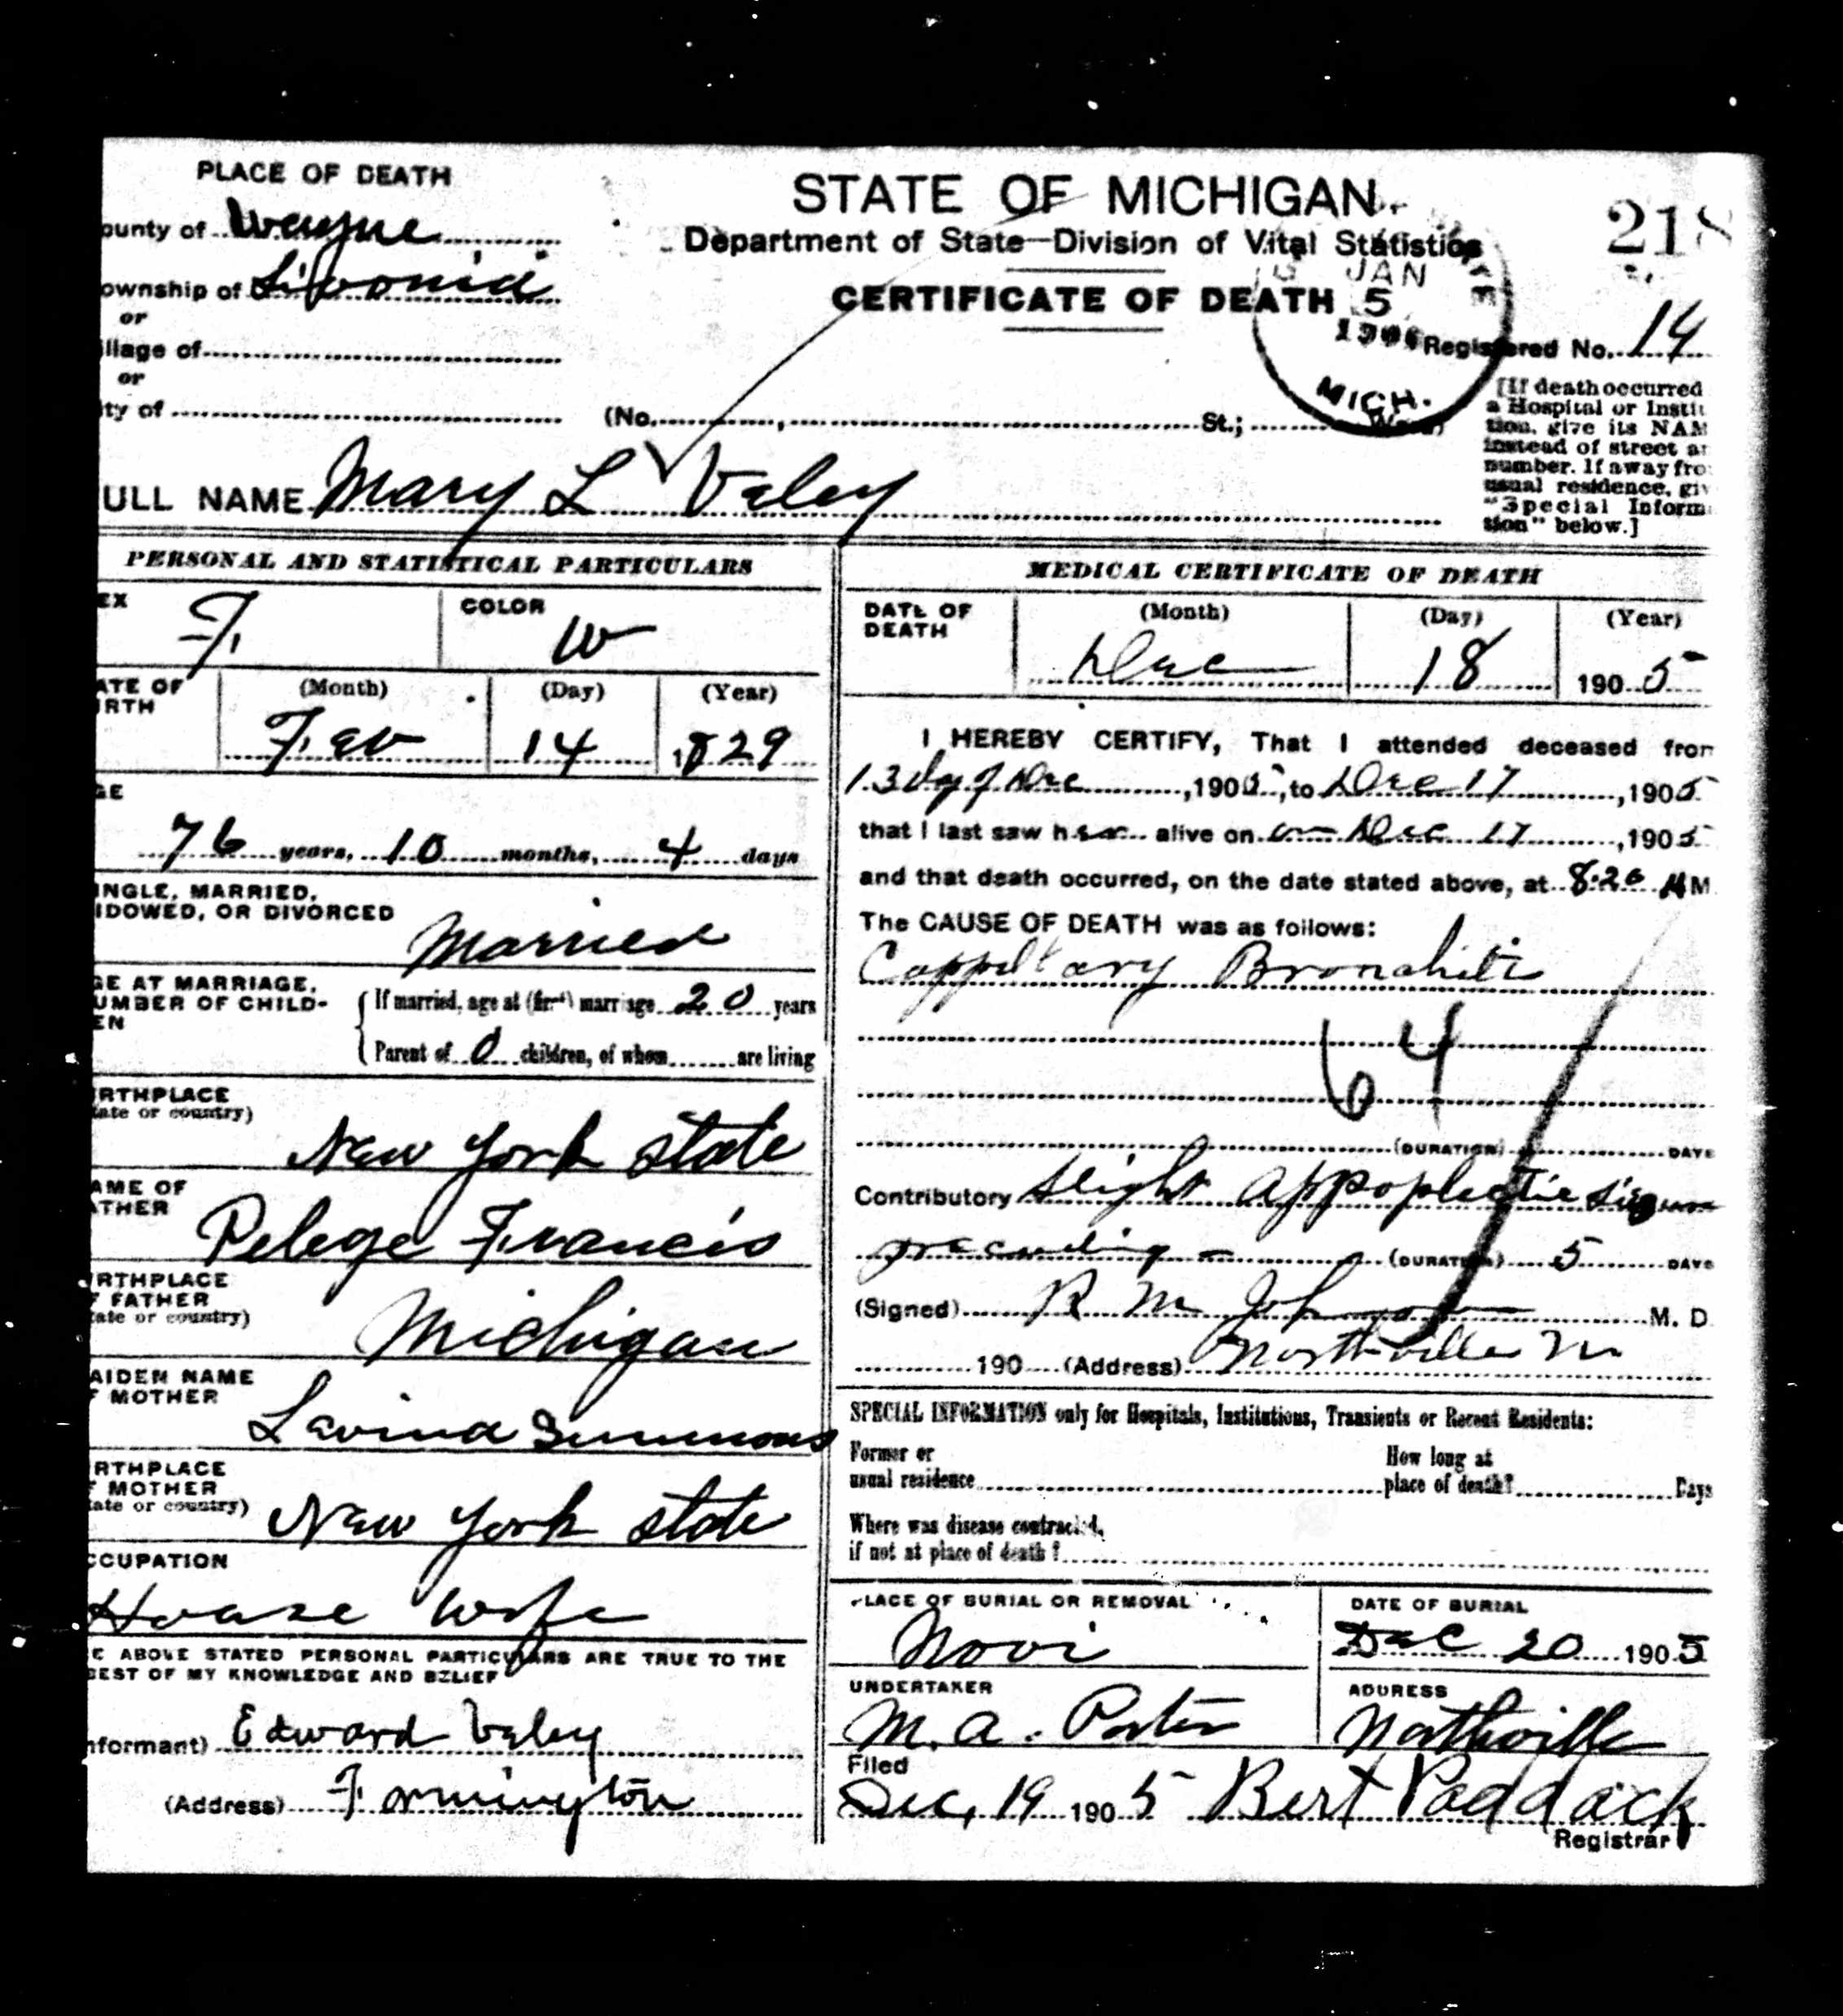 PLACE OF DEATH
ounty of Wayne
ownship of Livonia
or
illage of
or
ity of
STATE OF MICHIGAN
Department of State—Division of Vital Statistics
CERTIFICATE OF DEATH
218
JAN
5
1906
MICH.
Registered No. 14
(No. , St.; Ward)
[If death occurred
a Hospital or Instit
tion, give its NAM
instead of street an
number. If away fro
usual residence, giv
"Special Inform
tion" below.]
ULL NAME Mary L Valey
PERSONAL AND STATISTICAL PARTICULARS
EX F.
COLOR W
ATE OF
IRTH
(Month) (Day) (Year)
Feb 14 1829
GE
76 years, 10 months, 4 days
INGLE, MARRIED,
IDOWED, OR DIVORCED
Married
GE AT MARRIAGE,
UMBER OF CHILD-
EN
If married, age at (first) marriage 20 years
Parent of 0 children, of whom are living
IRTHPLACE
tate or country)
New York state
AME OF
ATHER
Pelege Francis
IRTHPLACE
F FATHER
tate or country)
Michigan
AIDEN NAME
F MOTHER
Lavina Simmons
IRTHPLACE
F MOTHER
tate or country)
New York state
CCUPATION
House wife
E ABOVE STATED PERSONAL PARTICULARS ARE TRUE TO THE
BEST OF MY KNOWLEDGE AND BELIEF
nformant) Edward Valey
(Address) Farmington
MEDICAL CERTIFICATE OF DEATH
DATE OF
DEATH
(Month) (Day) (Year)
Dec 18 1905
I HEREBY CERTIFY, That I attended deceased from
13 dy of Dec, 1905, to Dec 17, 1905
that I last saw her alive on Dec 17, 1905
and that death occurred, on the date stated above, at 8:20 AM
The CAUSE OF DEATH was as follows:
Cappillary Bronchitis
64
(DURATION) DAYS
Contributory slight appoplectic
preceeding (DURATION) 5 DAYS
(Signed) R M Johnson M. D
190 (Address) Northville M
SPECIAL INFORMATION only for Hospitals, Institutions, Transients or Recent Residents:
Former or
usual residence
How long at
place of death? Days
Where was disease contracted,
if not at place of death?
PLACE OF BURIAL OR REMOVAL
Novi
DATE OF BURIAL
Dec 20 1905
UNDERTAKER
M. A. Porter
ADDRESS
Northville
Filed
Dec, 19 1905 Bert Paddack
Registrar